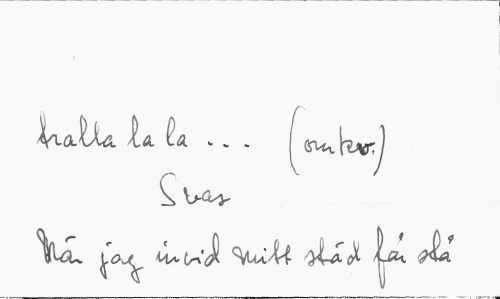 tralla la la ... (omkv.)
Svar
När jag invid mitt städ får stå